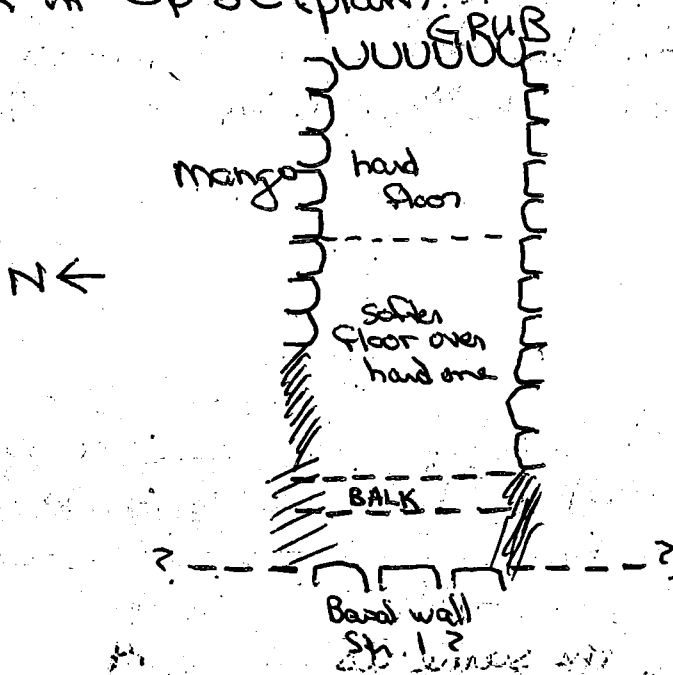 GRUB
mango
hard
floor
N
softer
floor over
hard one
BALK
? ?
Basal wall
Str. 1 ?